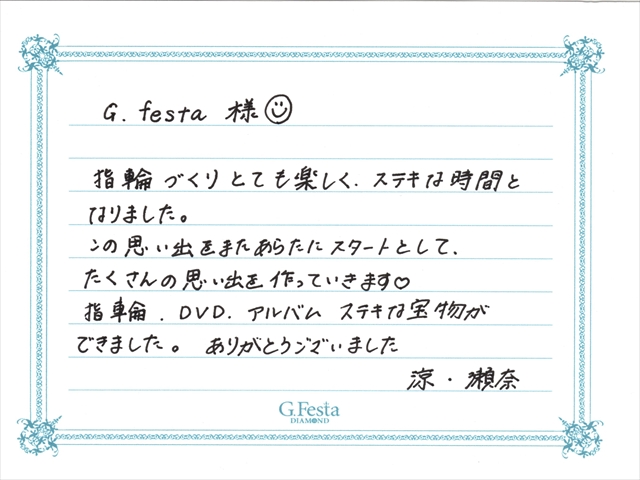 G.festa 様☺
指輪づくりとても楽しく、ステキな時間と
なりました。
この思い出をまたあらたにスタートとして、
たくさんの思い出を作っていきます♡
指輪、DVD、アルバム ステキな宝物が
できました。ありがとうございました
涼・瀬奈
G.Festa
DIAMOND